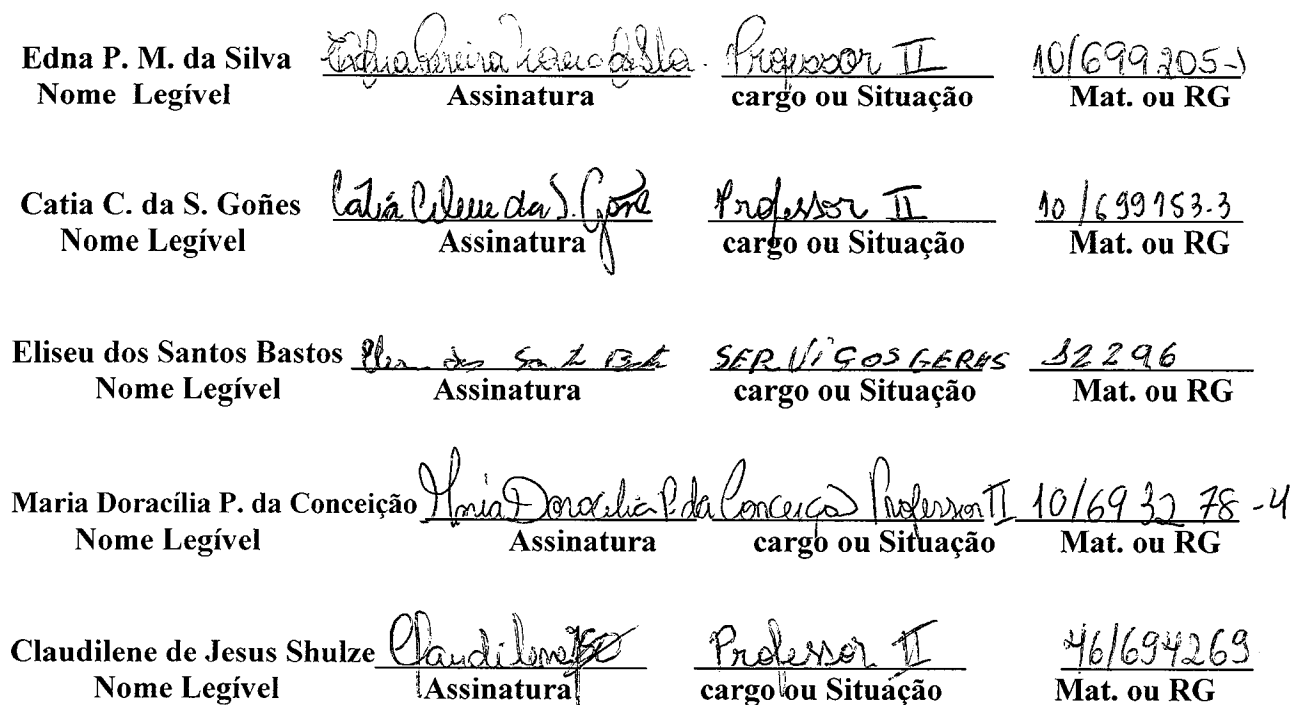 Edna P. M. da Silva Professor II 10/699205-
Nome Legível Assinatura cargo ou Situação Mat. ou RG
Catia C. da S. Goñes Catia Cilene da S. Goñe Professor II 10/699153-3
Nome Legível Assinatura cargo ou Situação Mat. ou RG
Eliseu dos Santos Bastos SERViÇOS GERAS 12296
Nome Legível Assinatura cargo ou Situação Mat. ou RG
Maria Doracília P. da Conceição Maria Doracilia P. da Conceição Professor II 10/693278-4
Nome Legível Assinatura cargo ou Situação Mat. ou RG
Claudilene de Jesus Shulze Claudilene Professor II 46/694269
Nome Legível Assinatura cargo ou Situação Mat. ou RG